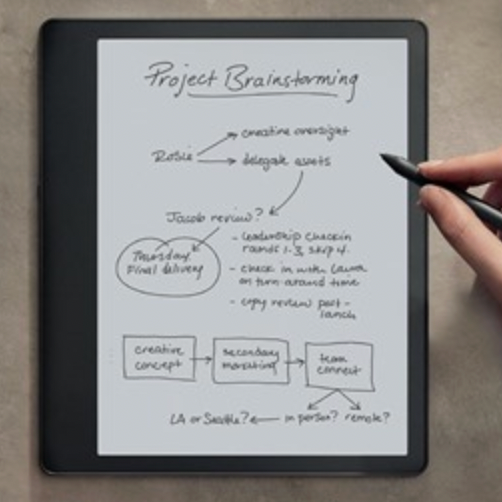 Project Brainstorming
creative oversight
Rosie
delegate assets
Jacob review?
- leadership check in
rounds 1-3, skip 4.
Thursday
Final delivery
- check in with Laura
on turn around time
- copy review post-
launch
creative
concept
secondary
marketing
team
connect
LA or Seattle?
in person?
remote?